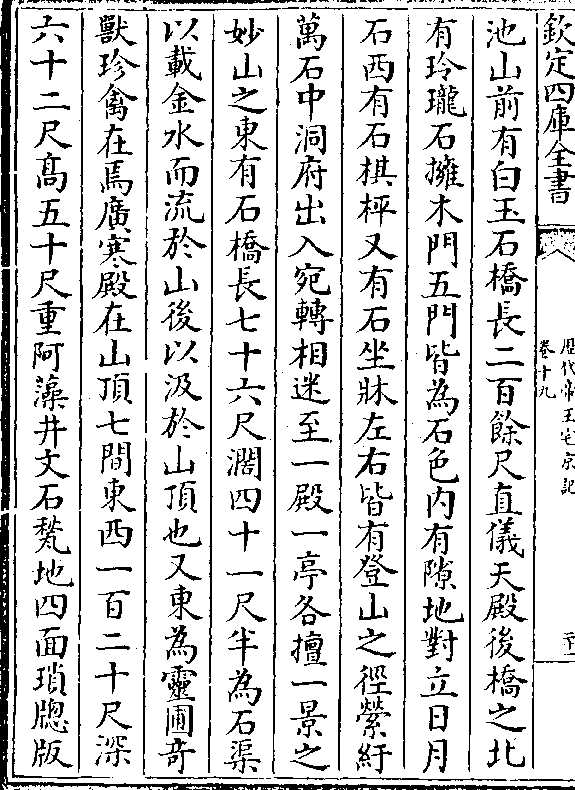 欽定四庫全書
歷代帝王宅京記
卷十九
池山前有白玉石橋長二百餘尺直儀天殿後橋之北
有玲瓏石擁木門五門皆為石色內有隙地對立日月
石西有石棋枰又有石坐牀左右皆有登山之徑縈紆
萬石中洞府出入宛轉相迷至一殿一亭各擅一景之
妙山之東有石橋長七十六尺濶四十一尺半為石渠
以載金水而流於山後以汲於山頂也又東為靈圃奇
獸珍禽在焉廣寒殿在山頂七間東西一百二十尺深
六十二尺髙五十尺重阿藻井文石甃地四面瑣牕版